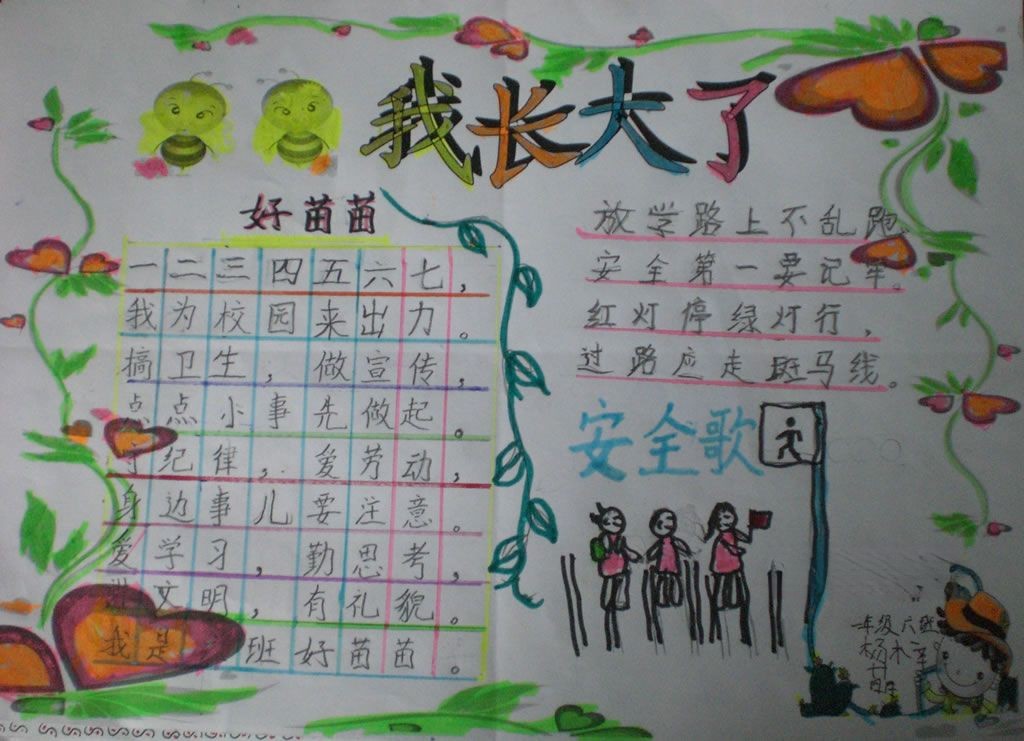 我长大了
好苗苗
一二三四五六七，
我为校园来出力。
搞卫生，做宣传，
点点小事先做起。
守纪律，爱劳动，
身边事儿要注意。
爱学习，勤思考，
讲文明，有礼貌。
我是 班好苗苗。
放学路上不乱跑，
安全第一要记牢。
红灯停绿灯行，
过路应走斑马线。
安全歌
一年级六班
杨